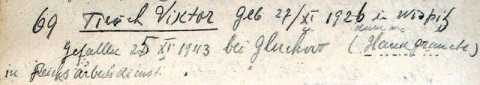 69 Tiesch Viktor geb 27/XI 1926 in Wispitz
gefallen 25 XI 1943 bei Gluchow (durch Handgranate)
in Reichsarbeitsdienst.